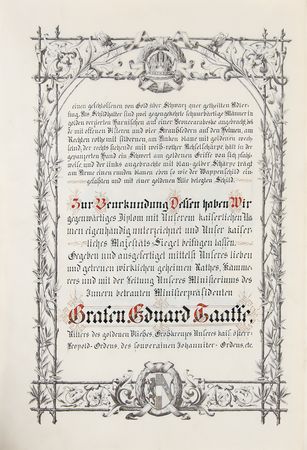 einen geschlossenen von Gold über Schwarz quer getheilten Adler-
flug. Als Schildhalter sind zwei gegengekehrte schnurrbärtige Männer in
golden verzierten Harnischen auf einer Broncearabeske angebracht, bei-
de mit offenen Visieren und vier Straußfedern auf den Helmen, am
Rechten roth mit silbernen, am Linken blame mit goldenen wech-
selnd, der rechts stehende mit weiß-rother Achselschärpe hält in der
gepanzerten Hand ein Schwert am goldenen Griffe von sich
und der links angebrachte mit blau-gelber Schärpe trägt
am Arme einen runden blauen eben so wie der Wappenschild ein-
gefaßten und mit einer goldenen Lilie belegten Schild.
Zur Beurkundung Dessen haben Wir
gegenwärtiges Diplom mit Unserem kaiserlichen Na-
men eigenhändig unterzeichnet und Unser kaiser-
liches Majestäts-Siegel beifügen lassen.
Gegeben und ausgefertiget mittelst Unseres lieben
und getreuen wirklichen geheimen Rathes, Kämme-
rers und mit der Leitung Unseres Ministeriums des
Innern betrauten Ministerpräsidenten
Grafen Eduard Taaffe,
Ritters des goldenen Vließes, Großkreuzes Unseres kais. österr.
Leopold-Ordens, des souverainen Johanniter-Ordens, etc.